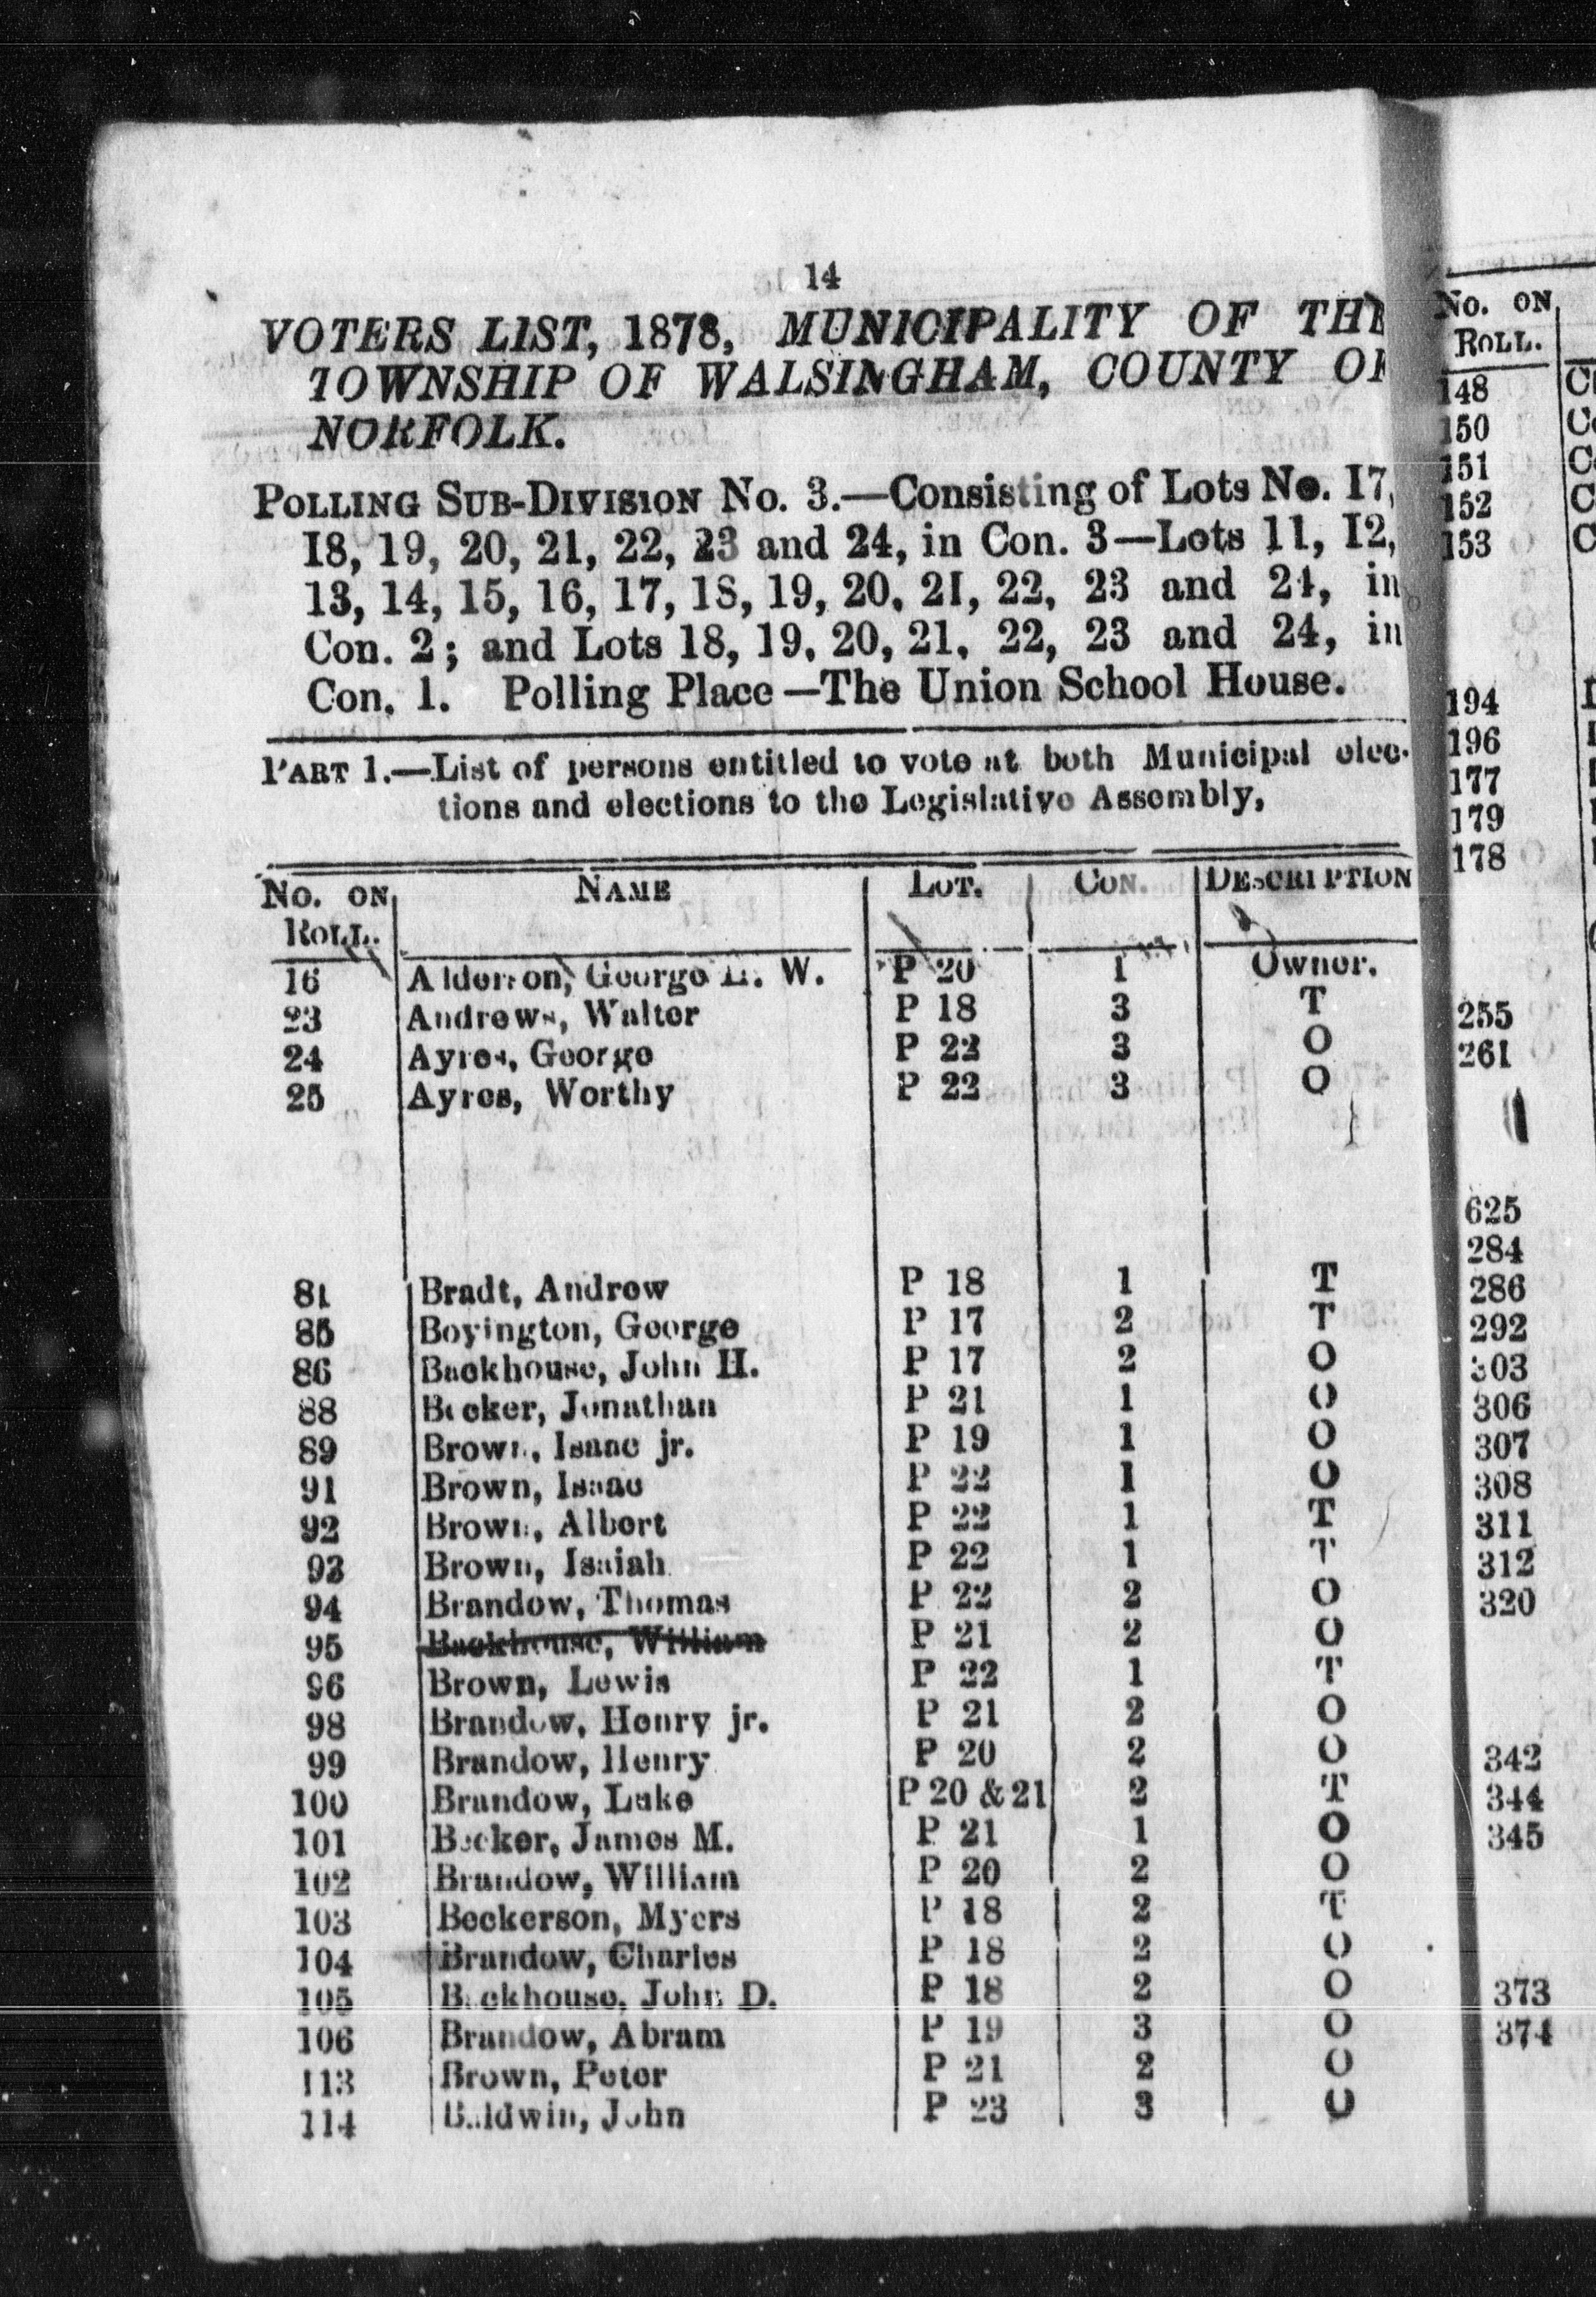 14
VOTERS LIST, 1878, MUNICIPALITY OF THE
TOWNSHIP OF WALSINGHAM, COUNTY OF
NORFOLK.
POLLING SUB-DIVISION No. 3.—Consisting of Lots No. 17,
18, 19, 20, 21, 22, 23 and 24, in Con. 3—Lots 11, 12,
13, 14, 15, 16, 17, 18, 19, 20, 21, 22, 23 and 24, in
Con. 2; and Lots 18, 19, 20, 21, 22, 23 and 24, in
Con. 1. Polling Place—The Union School House.
PART 1.—List of persons entitled to vote at both Municipal elec-
tions and elections to the Legislative Assembly,
No. ON ROLL. NAME LOT. CON. DESCRIPTION
16 Alderson, George L. W. P 20 1 Owner.
23 Andrews, Walter P 18 3 T
24 Ayres, George P 22 3 O
25 Ayres, Worthy P 22 3 O
81 Bradt, Andrew P 18 1 T
85 Boyington, George P 17 2 T
86 Backhouse, John H. P 17 2 O
88 Becker, Jonathan P 21 1 O
89 Brown, Isaac jr. P 19 1 O
91 Brown, Isaac P 22 1 O
92 Brown, Albert P 22 1 T
93 Brown, Isaiah P 22 1 T
94 Brandow, Thomas P 22 2 O
95 Backhouse, William P 21 2 O
96 Brown, Lewis P 22 1 T
98 Brandow, Henry jr. P 21 2 O
99 Brandow, Henry P 20 2 O
100 Brandow, Luke P 20 & 21 2 T
101 Becker, James M. P 21 1 O
102 Brandow, William P 20 2 O
103 Beckerson, Myers P 18 2 T
104 Brandow, Charles P 18 2 O
105 Backhouse, John D. P 18 2 O
106 Brandow, Abram P 19 3 O
113 Brown, Peter P 21 2 O
114 Baldwin, John P 23 3 O
No. ON
ROLL.
148
150
151
152
153
194
196
177
179
178
255
261
625
284
286
292
303
306
307
308
311
312
320
342
344
345
373
374